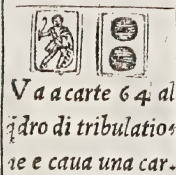 Va a carte 64 al
qdro di tribulatio-
ne e caua una car-